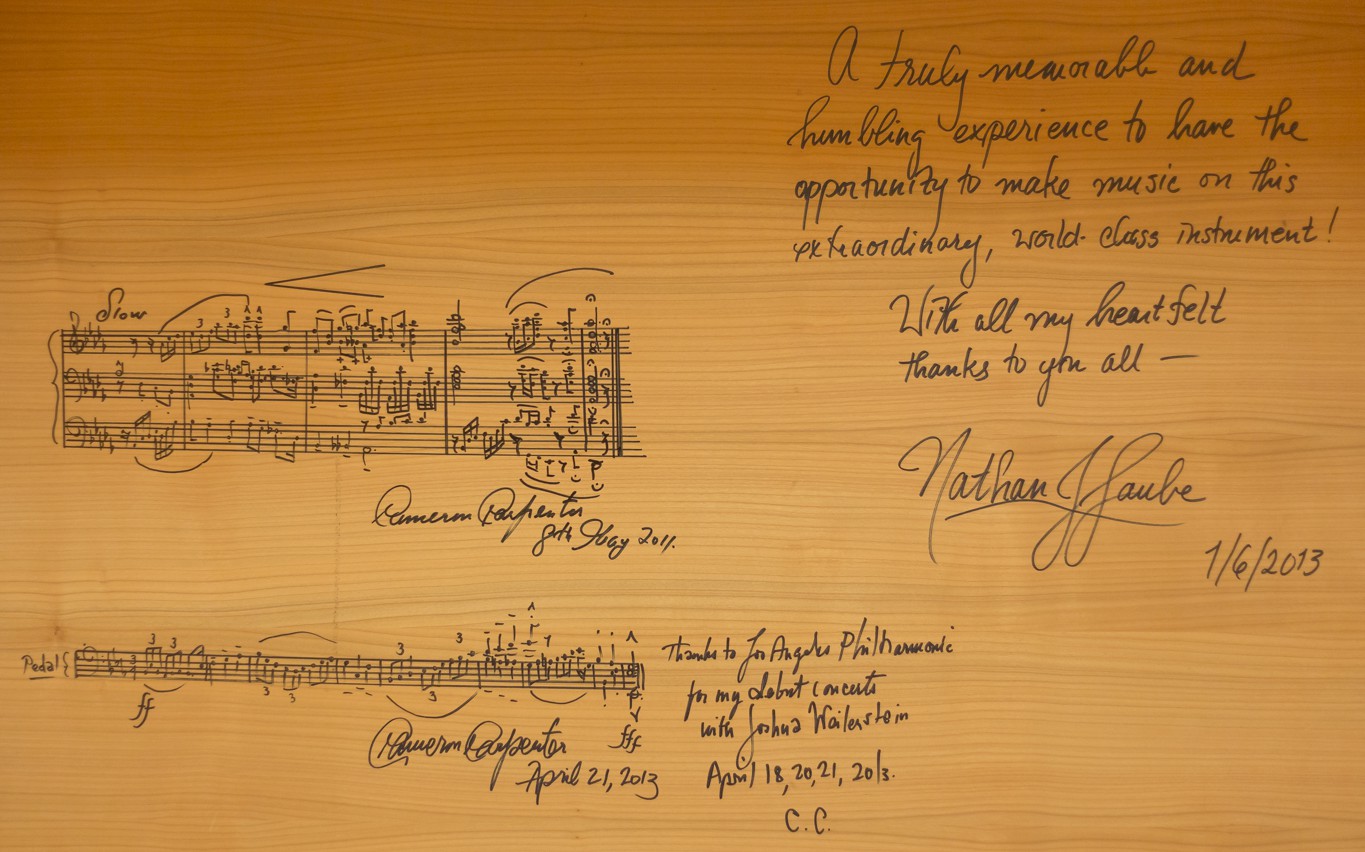 A truly memorable and
humbling experience to have the
opportunity to make music on this
extraordinary, world-class instrument!
With all my heartfelt
thanks to you all —
Nathan J Laube
1/6/2013
Slow
3 3
Cameron Carpenter
8th May 2011.
Pedal
3 3 3 3 3 3 3
ff
fff
Cameron Carpenter
April 21, 2013
Thanks to Los Angeles Philharmonic
for my debut concerts
with Joshua Weilerstein
April 18, 20, 21, 2013.
C.C.